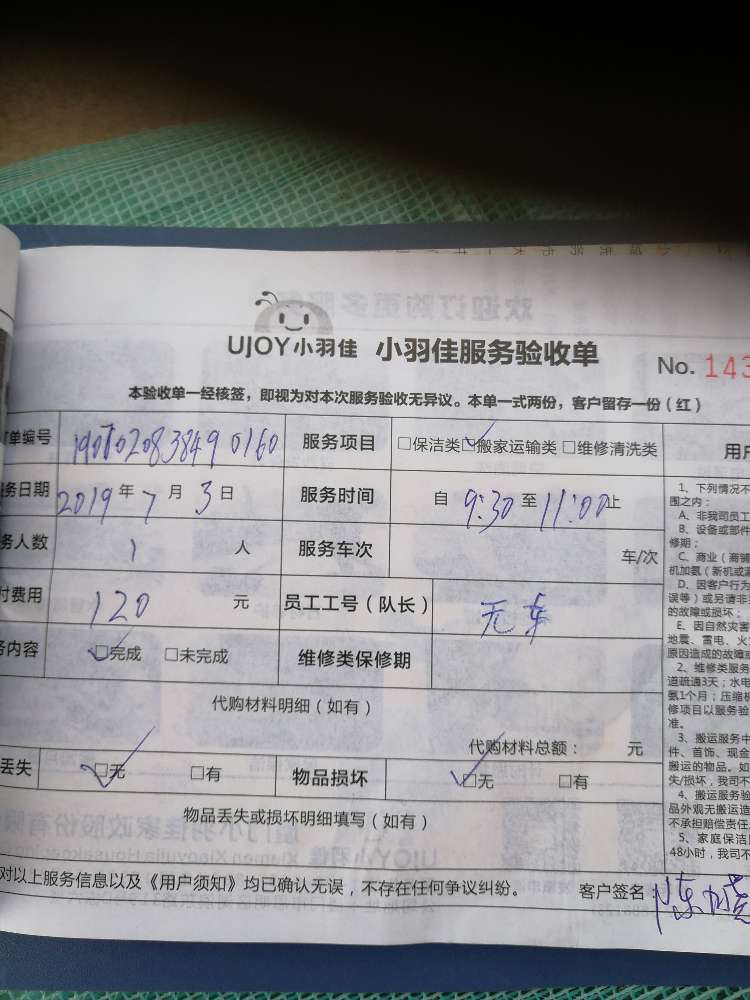 UJOY小羽佳 小羽佳服务验收单
No. 143
本验收单一经核签，即视为对本次服务验收无异议。本单一式两份，客户留存一份（红）
单编号 1907020838490160 服务项目 □保洁类 ☑搬家运输类 □维修清洗类 用户
务日期 2019年7月3日 服务时间 自9:30至11:00止
务人数 1 人 服务车次 车/次
付费用 120 元 员工工号（队长） 无车
务内容 ☑完成 □未完成 维修类保修期
代购材料明细（如有）
代购材料总额： 元
丢失 ☑无 □有 物品损坏 ☑无 □有
物品丢失或损坏明细填写（如有）
对以上服务信息以及《用户须知》均已确认无误，不存在任何争议纠纷。 客户签名 陈
1、下列情况不
围之内：
A、非我司员工
B、设备或部件
修期；
C、商业（商铺
机加氨（新机或漏
D、因客户行为
误等）或另请非
的故障或损坏；
E、因自然灾害
地震、雷电、火
原因造成的故障或
2、维修类服务
道疏通3天；水电
氨1个月；压缩机
修项目以服务验
准。
3、搬运服务中
件、首饰、现金
搬运的物品。如
失/损坏，我司不
4、搬运服务验
品外观无搬运造
不承担赔偿责任
5、家庭保洁
48小时，我司不